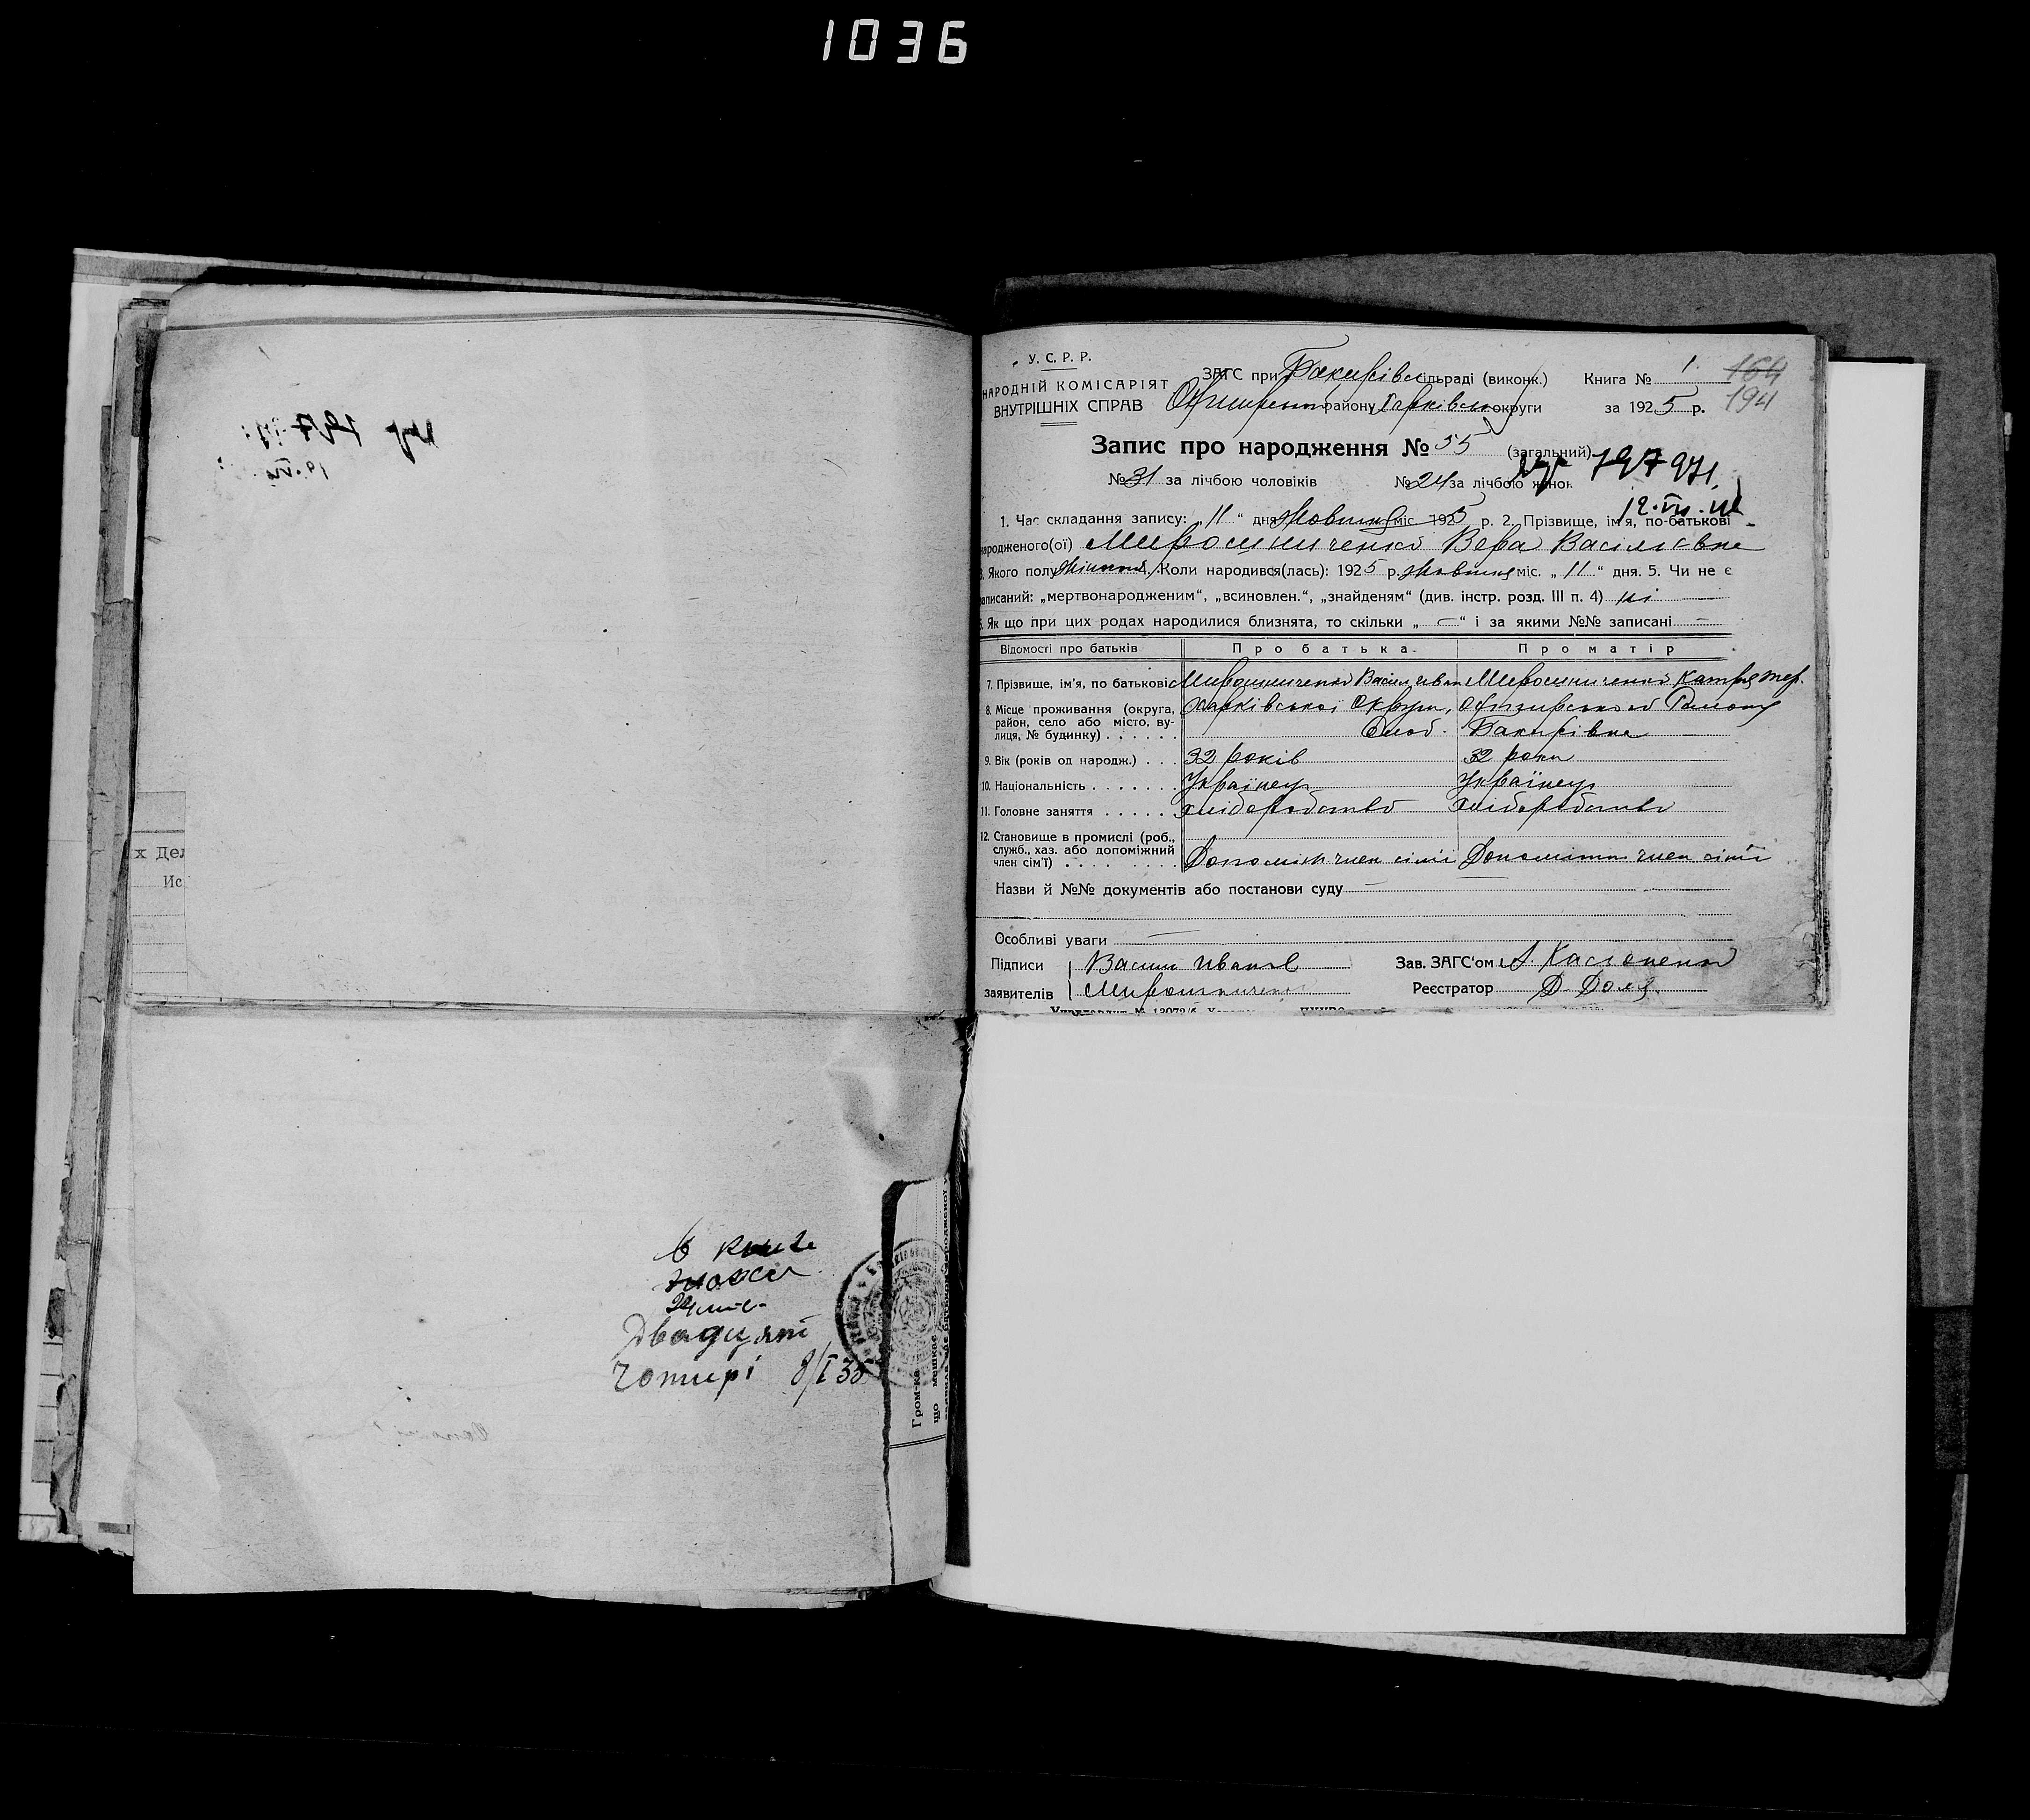 1036
х Дел
Ис
в книзе
24
Двадцят
чотирі 8/I 35
Гром-ка
що мешкає
У. С. Р. Р.
НАРОДНІЙ КОМІСАРІЯТ
ВНУТРІШНІХ СПРАВ
ЗАГС при Бакирівс сільраді (виконк.) Книга № 1 164
району Харківсько округи за 1925 р. 194
Запис про народження № 55 (загальний)
№ 31 за лічбою чоловіків № 24 за лічбою жінок
1. Час складання запису: „ 11 “ дня Жовтня міс. 1925 р. 2. Прізвище, ім'я, по-батькові
народженого(ої) Мирошниченко Вера Васильєвна
3. Якого полу 4. Коли народився(лась): 1925 р. Жовтня міс. „ 11 “ дня. 5. Чи не є
записаний: „мертвонародженим“, „всиновлен.“, „знайденям“ (див. інстр. розд. III п. 4) ні
6. Як що при цих родах народилися близнята, то скільки „ — “ і за якими №№ записані —
Відомості про батьків Про батька. Про матір
7. Прізвище, ім'я, по батькові Мирошниченко Васил Иван Мирошниченко Катря
8. Місце проживання (округа, Харківської Округи, Охтирського Району
район, село або місто, ву-
лиця, № будинку) . . . . . . Слоб. Бакирівка
9. Вік (років од народж.) . . . 32 років 32 роки
10. Національність . . . . . . . Українец Українец
11. Головне заняття . . . . . Хліборобство Хліборобство
12. Становище в промислі (роб.,
служб., хаз. або допоміжний
член сім'ї) . . . . . . . . Допоміжн член сімї Допоміжн. член сімї
Назви й №№ документів або постанови суду —
Особливі уваги —
Підписи Васили Иванов Зав. ЗАГС'ом
заявителів Мирошниченко Реєстратор Д. Доля